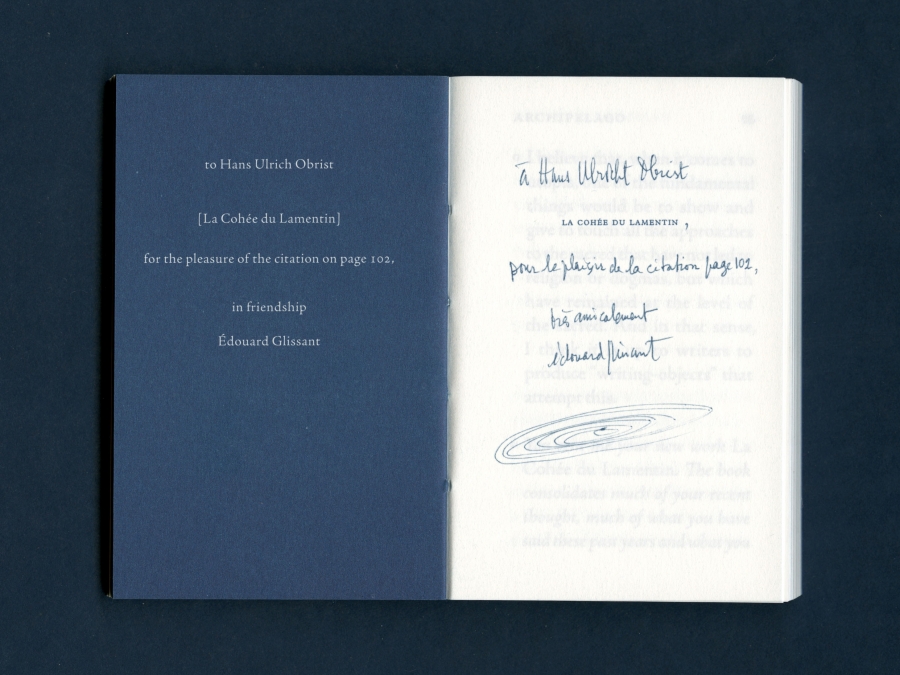 to Hans Ulrich Obrist
[La Cohée du Lamentin]
for the pleasure of the citation on page 102,
in friendship
Édouard Glissant
à Hans Ulricht Obrist
LA COHÉE DU LAMENTIN ,
pour le plaisir de la citation page 102,
très amicalement
édouard glissant
ARCHIPELAGO
fundamental
things would be to show and
give to touch all the approaches
have remained at the level of
in that sense,
writers to
produce "writing-objects" that
attempt this.
your new work La
Cohée du Lamentin. The book
consolidates much of your recent
thought, much of what you have
these past years and what you